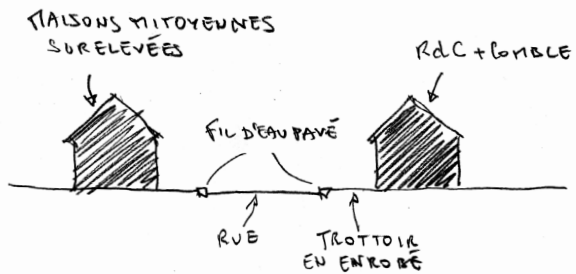 MAISONS MITOYENNES
SURELEVÉES
RdC + COMBLE
FIL D'EAU PAVÉ
RUE
TROTTOIR
EN ENROBÉ